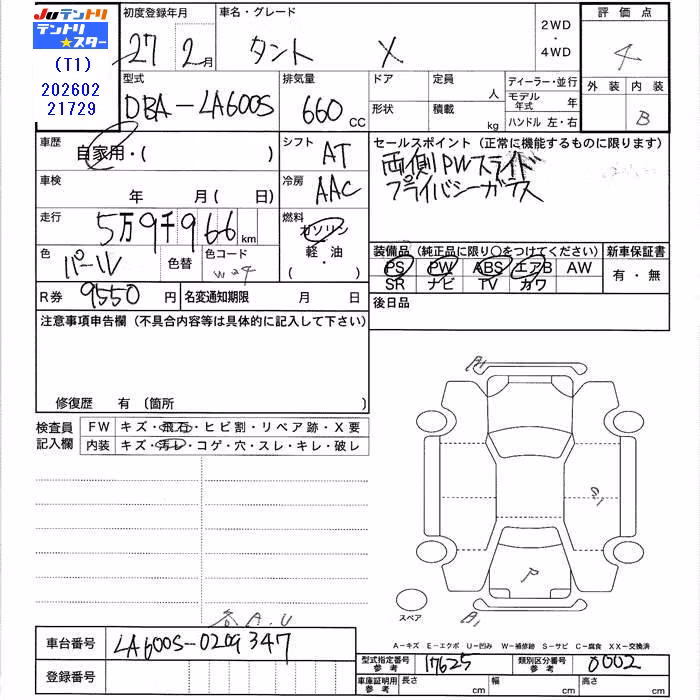 JUテントリ
テントリ
★スター
(T1)
202602
21729
初度登録年月
27年 2月
車名・グレード
タント X
2WD
・
4WD
評価点
4
外装 内装
B
型式
DBA-LA600S
排気量
660 CC
ドア
形状
定員 人
積載 kg
ディーラー・並行
モデル年式 年
ハンドル 左・右
車歴
自家用・( )
シフト
AT
車検
年 月 ( 日)
冷房
AAC
走行
5万9千966 km
燃料
ガソリン
軽・油
・
色
パール
色替
色コード
W24
R券
9550 円
名変通知期限 月 日
セールスポイント (正常に機能するものに限ります)
両側PWスライド
プライバシーガラス
装備品 (純正品に限り○をつけてください)
PS PW ABS エアB AW
SR ナビ TV カワ
新車保証書
有・無
後日品
注意事項申告欄 (不具合内容等は具体的に記入して下さい)
修復歴 有 (箇所 )
検査員
記入欄
FW キズ・飛石・ヒビ割・リペア跡・X要
内装 キズ・汚レ・コゲ・穴・スレ・キレ・破レ
各A.U
A1
S1
P
A1
スペア
A-キズ E-エクボ U-凹み W-補修跡 S-サビ C-腐食 XX-交換済
車台番号
LA600S-0209347
登録番号
型式指定番号
参考
17625
類別区分番号
参考
0002
車庫証明用
参考
長さ cm 幅 cm 高さ cm